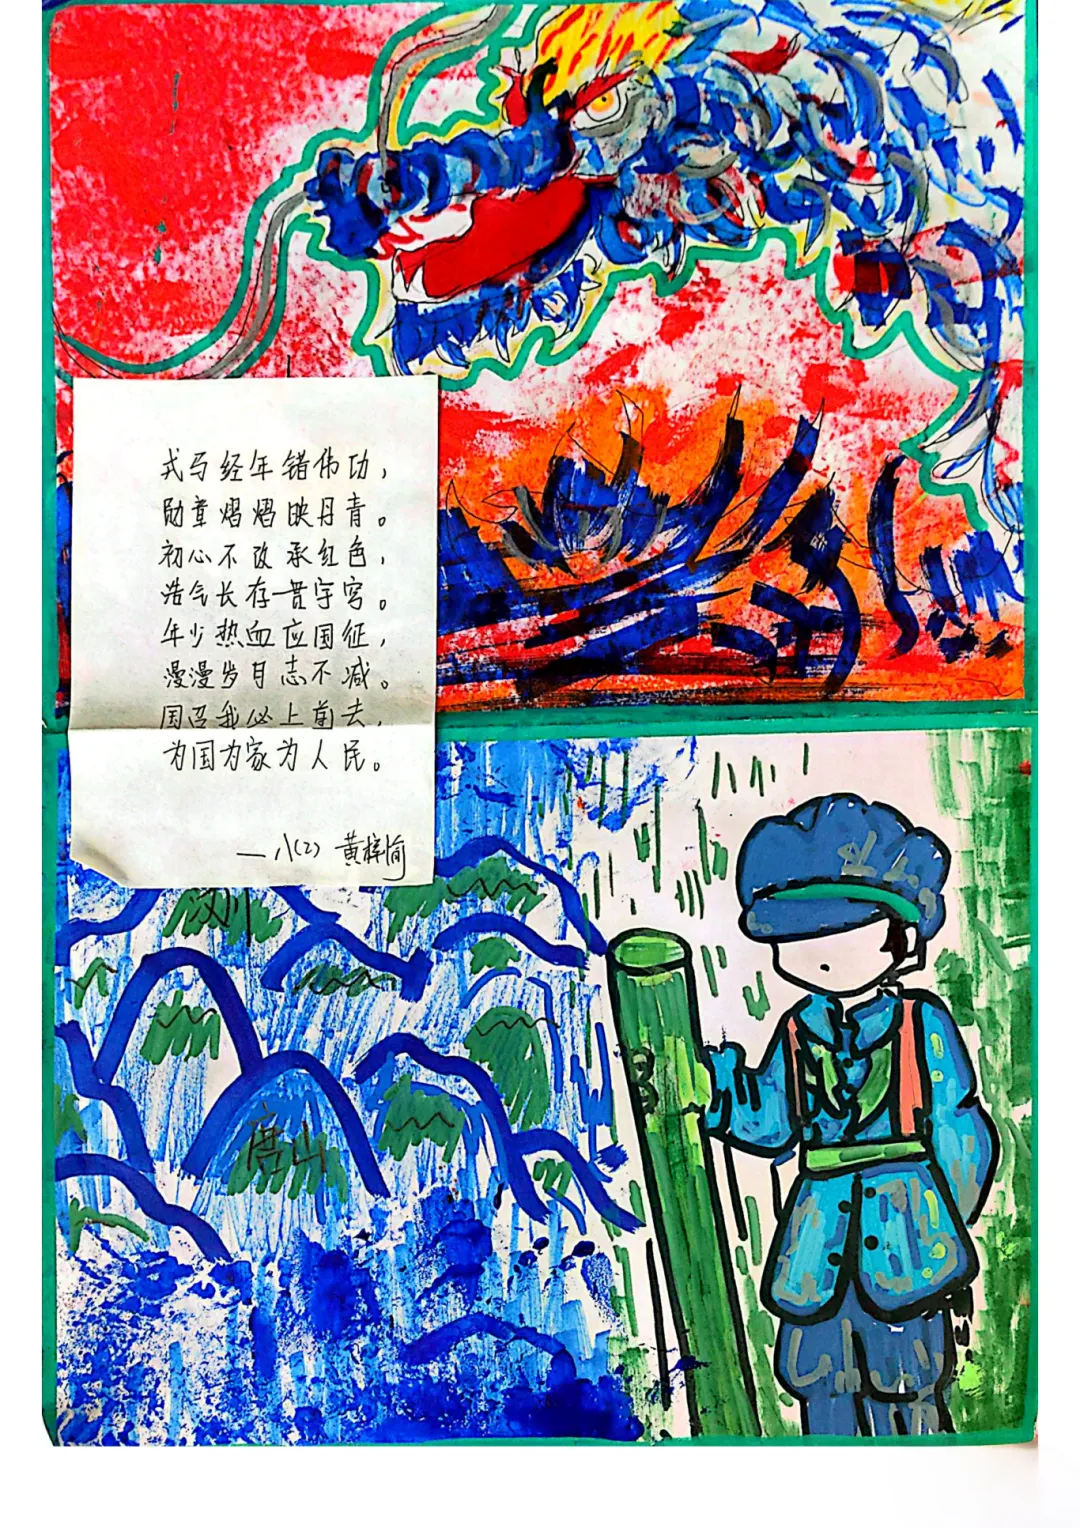 式马经年锗伟功，
勋章熠熠映丹青。
初心不改承红色，
浩气长存贯宇穹。
年少热血应国征，
漫漫岁月志不减。
国召我必上前去，
为国为家为人民。
—八(2) 黄梓愉
汶川
唐山